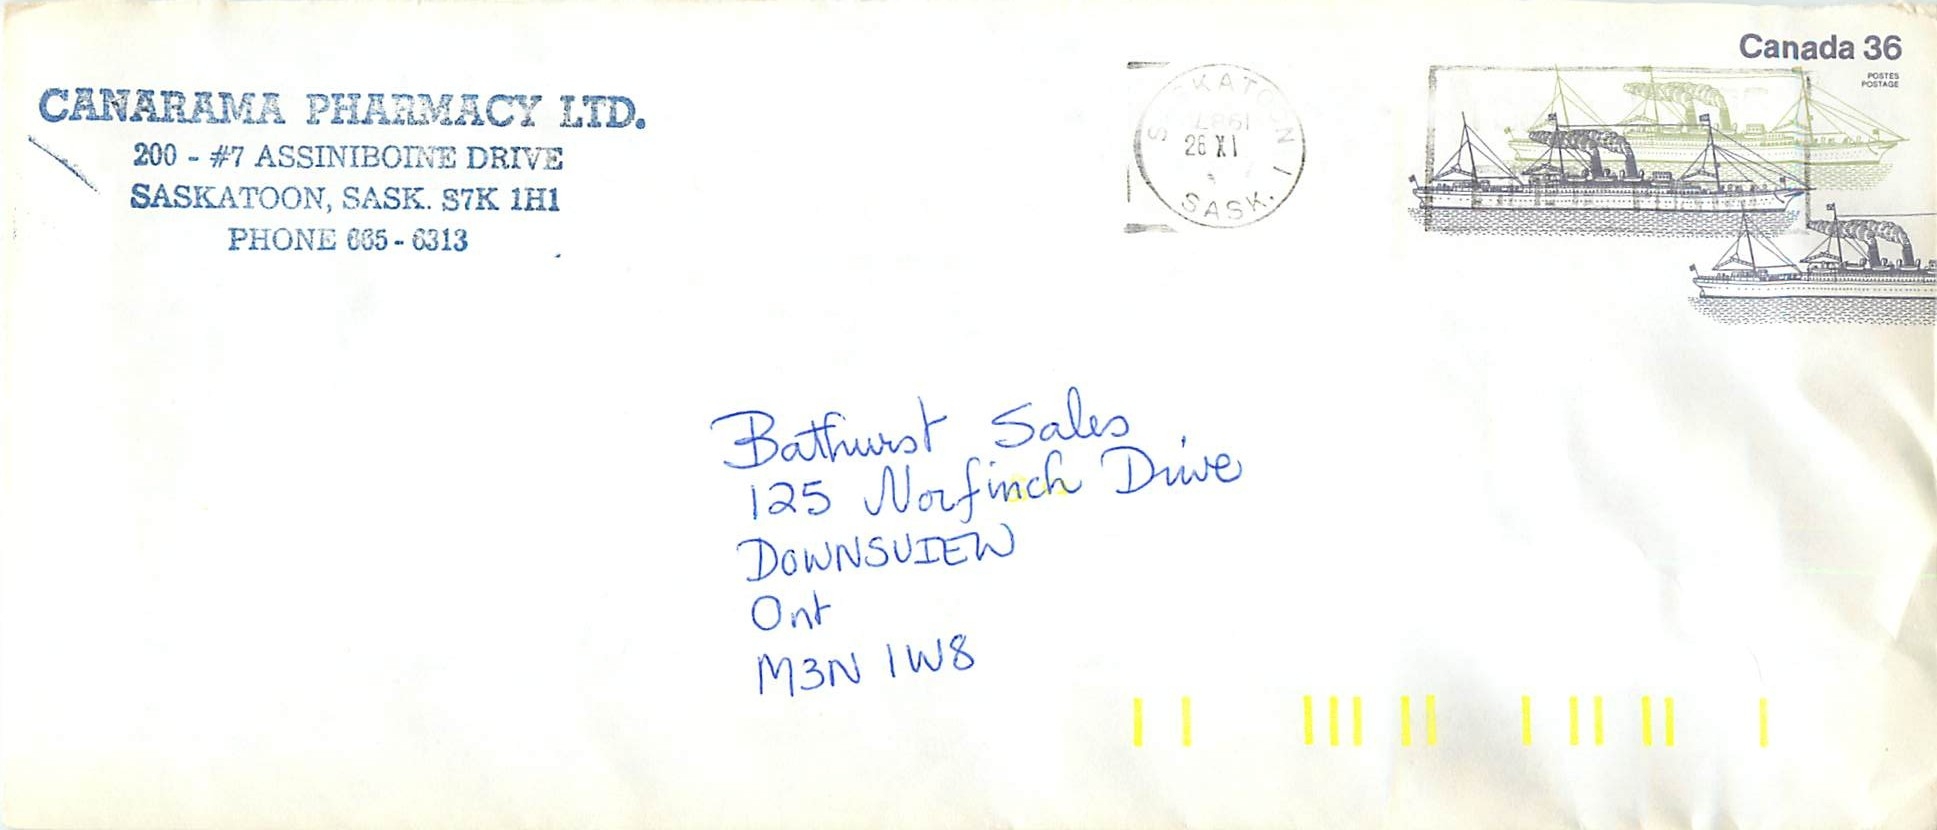 CANARAMA PHARMACY LTD.
200 - #7 ASSINIBOINE DRIVE
SASKATOON, SASK. S7K 1H1
PHONE 665-6313
Canada 36
POSTES
POSTAGE
SASKATOON 1
1987
26 XI
SASK.
Bathurst Sales
125 Norfinch Drive
DOWNSVIEW
Ont
M3N 1W8